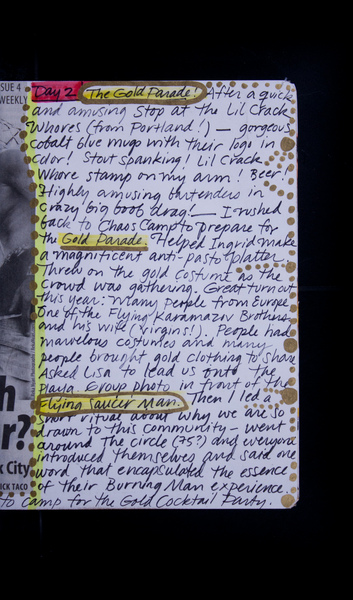 SUE 4
WEEKLY
h
r?
k City.
ICK TACO
Day 2 The Gold Parade! After a quick
and amusing stop at the Lil Crack
Whores (from Portland!) — gorgeous
cobalt blue mugs with their logo in
color! Stout spanking! Lil Crack
Whore stamp on my arm! Beer!
Highly amusing bartenders in
crazy big boob drag! — I rushed
back to Chaos Camp to prepare for
the Gold Parade. Helped Ingrid make
a magnificent anti-pasto platter.
Threw on the gold costume as the
crowd was gathering. Great turnout
this year: Many people from Europe,
One of the Flying Karamazov Brothers
and his wife (virgins!). People had
marvelous costumes and many
people brought gold clothing to share.
Asked Lisa to lead us onto the
Playa. Group photo in front of the
Flying Saucer Man. Then I led a
short ritual about why we are so
drawn to this community – went
around the circle (75?) and everyone
introduced themselves and said one
word that encapsulated the essence
of their Burning Man experience.
to camp for the Gold Cocktail Party.